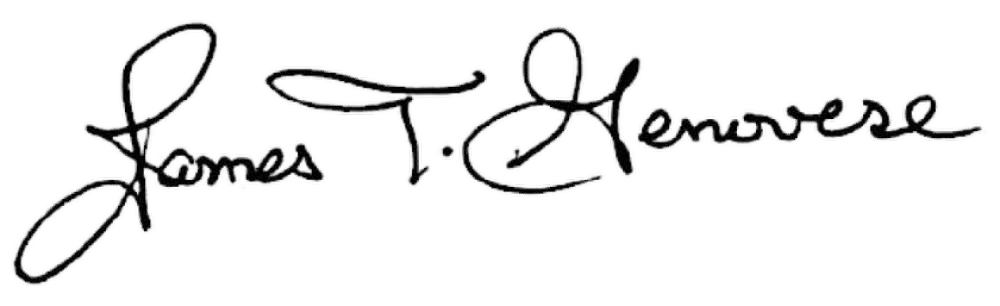 James T. Genovese